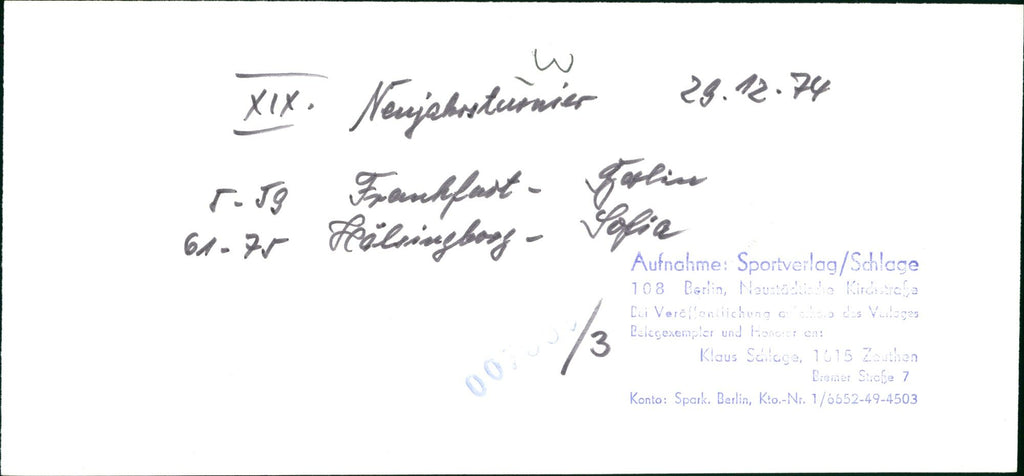 W
XIX. Neujahrsturnier 29.12.74
5-59 Frankfurt - Berlin
61-75 Hälsingborg - Sofia
Aufnahme: Sportverlag/Schlage
108 Berlin, Neustädtische Kirchstraße
Bei Veröffentlichung außerhalb des Verlages
Belegexemplar und Honorar an:
Klaus Schlage, 1615 Zeuthen
Bremer Straße 7
Konto: Spark. Berlin, Kto.-Nr. 1/6652-49-4503
/3